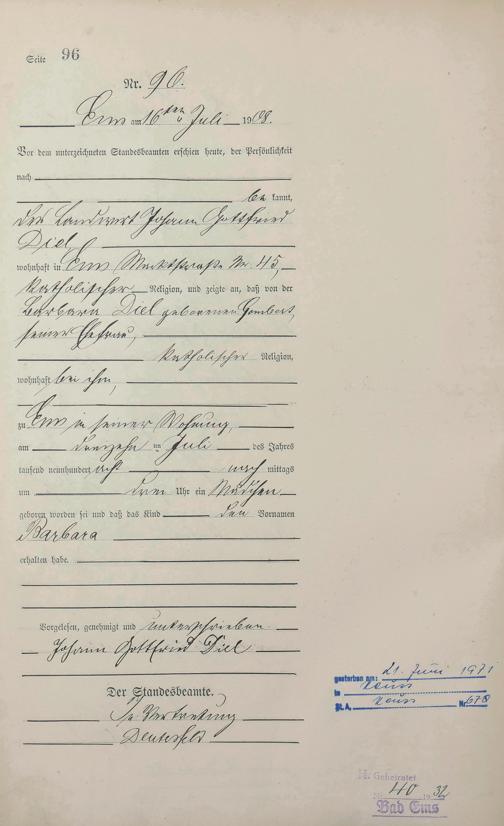 Seite 96
Nr. 90.
Ems am 16ten Juli 1908.
Vor dem unterzeichneten Standesbeamten erschien heute, der Persönlichkeit
nach
be kannt,
der Landwirt Johann Gottfried
Diel,
wohnhaft in Ems Marktstraße Nr. 45,
katholischer Religion, und zeigte an, daß von der
Barbara Diel geborenen Gombert,
seiner Ehefrau,
katholischer Religion,
wohnhaft bei ihm,
zu Ems in seiner Wohnung,
am dreizehn ten Juli des Jahres
tausend neunhundert acht nach mittags
um drei Uhr ein Mädchen
geboren worden sei und daß das Kind den Vornamen
Barbara
erhalten habe.
Vorgelesen, genehmigt und unterschrieben
Johann Gottfried Diel
Der Standesbeamte.
In Vertretung
gestorben am: 21. Juni 1971
in
St.A. Nr 678
Geheiratet
Nr. 40 1932
Bad Ems